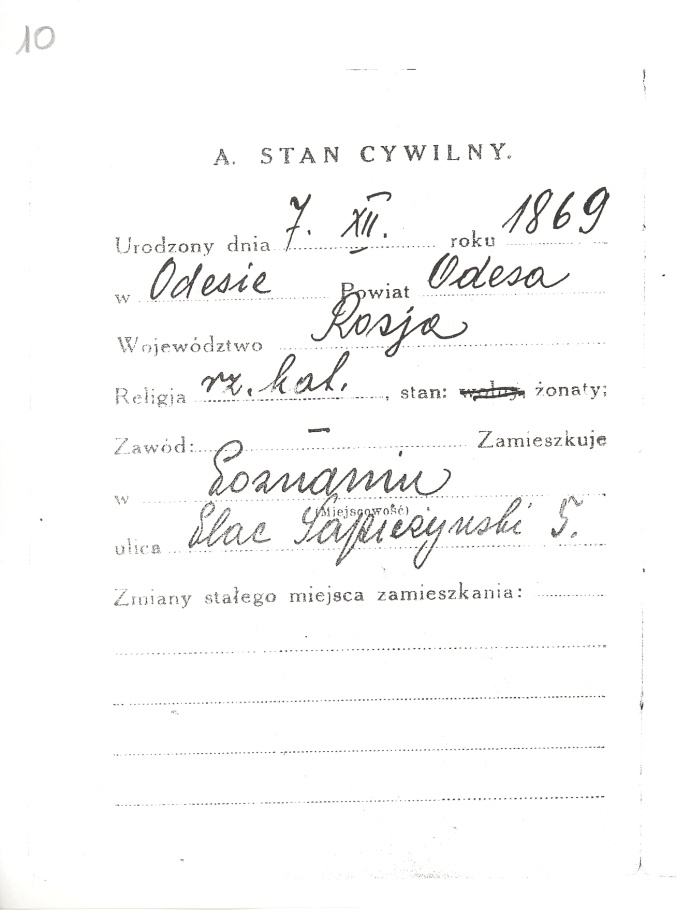 10
A. STAN CYWILNY.
Urodzony dnia 7. XII. roku 1869
w Odesie Powiat Odesa
Województwo Rosja
Religia rz. kat., stan: wolny, żonaty;
Zawód: — Zamieszkuje
w Poznaniu
(Miejscowość)
ulica Plac Sapieżyński 5.
Zmiany stałego miejsca zamieszkania: